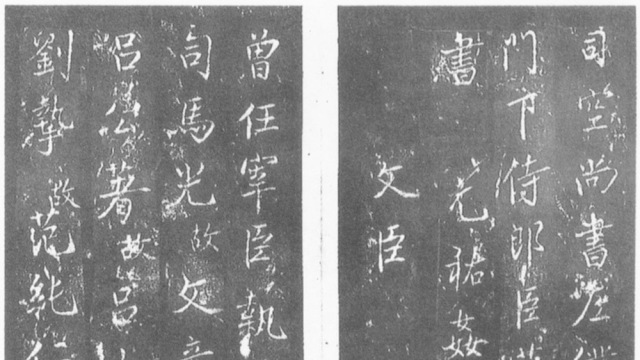 司空尚書左
門下侍郎臣
書 元祐姦
文臣
曾任宰臣執
司馬光故 文彥
呂公著故 呂
劉摯故 范純